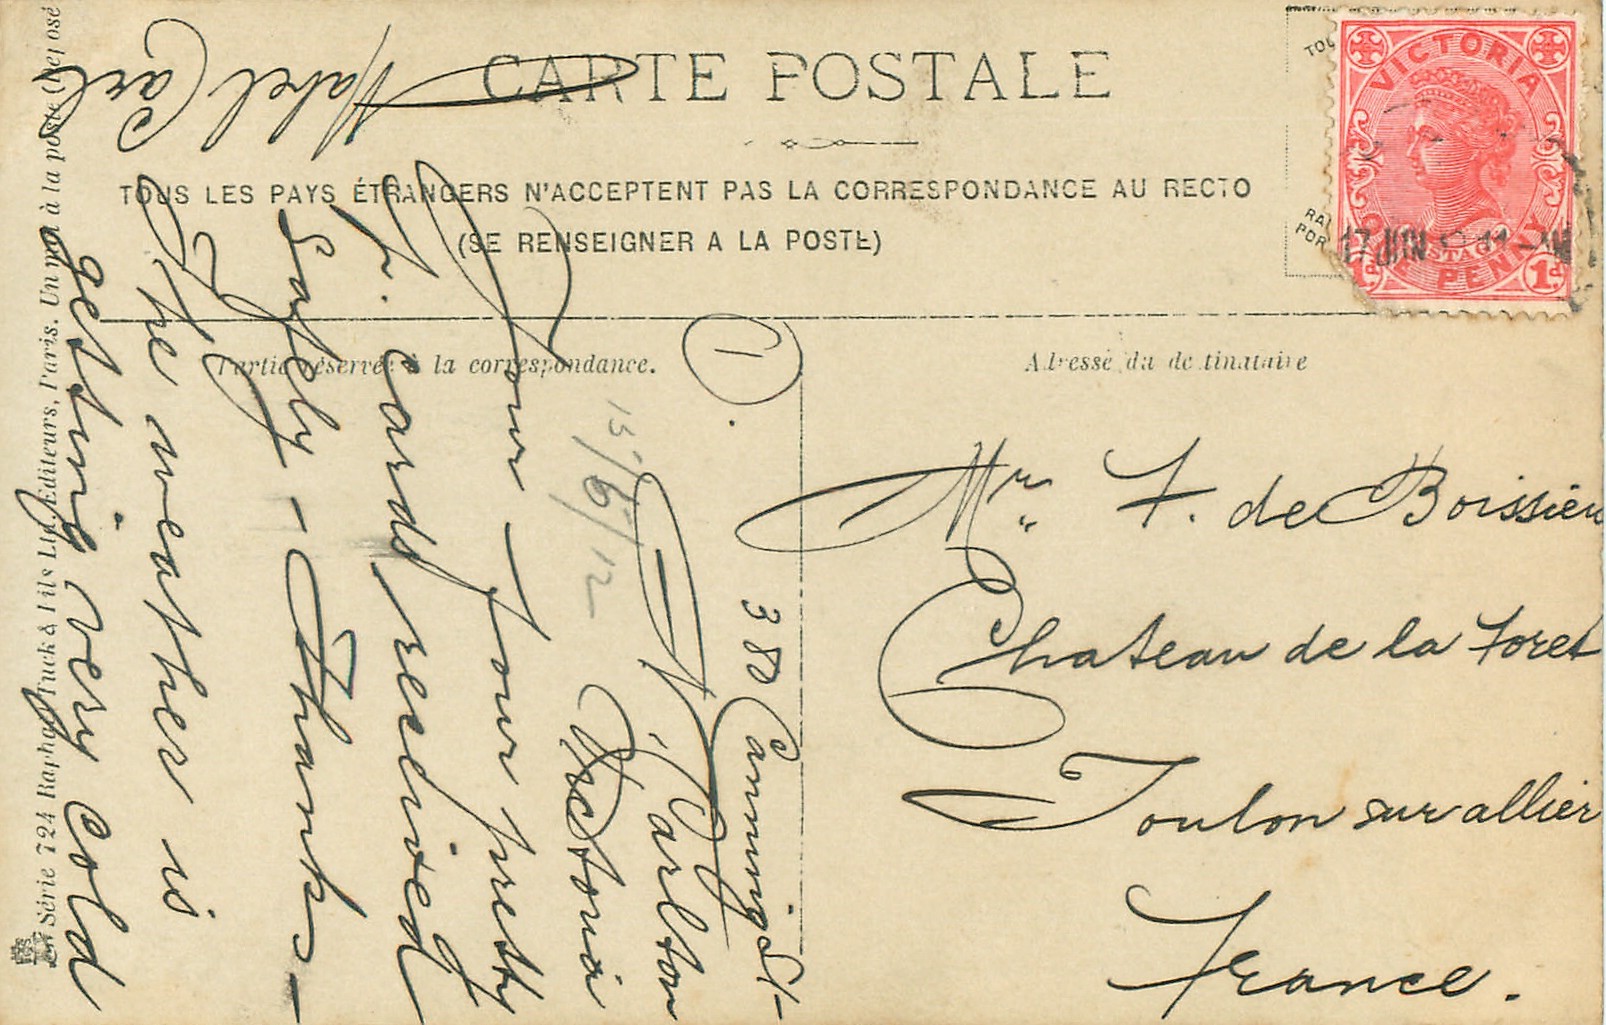 CARTE POSTALE
TOUS LES PAYS ÉTRANGERS N'ACCEPTENT PAS LA CORRESPONDANCE AU RECTO
(SE RENSEIGNER A LA POSTE)
Partie réservée à la correspondance.
Adresse du destinataire
VICTORIA
ONE PENNY
POSTAGE
1
17 JUN 11-AM
Mr. F. de Boissieu
Chateau de la Foret
Toulon sur allier
France.
1
380 Canning St-
N. Carlton
Victoria
15/6/12
Your four pretty
p. cards received
safely - Thanks -
The weather is
getting very cold
Mabel Carl
Série 724 Raphael Tuck & Fils Ltd. Editeurs, Paris. Un mot à la poste (Déposé